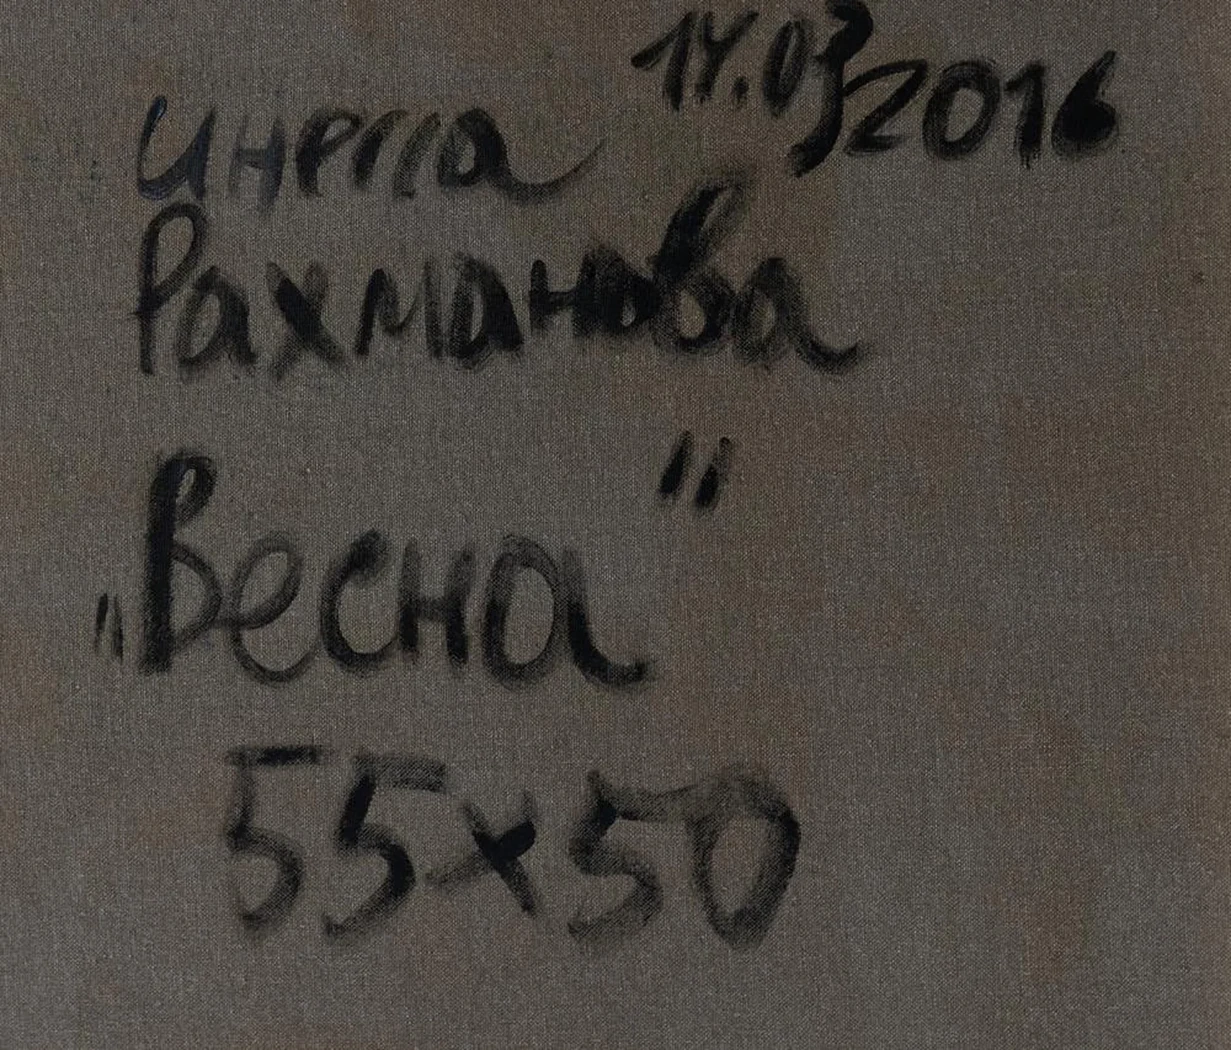 14.03 2016
Инесса
Рахманова
„Весна"
55х50